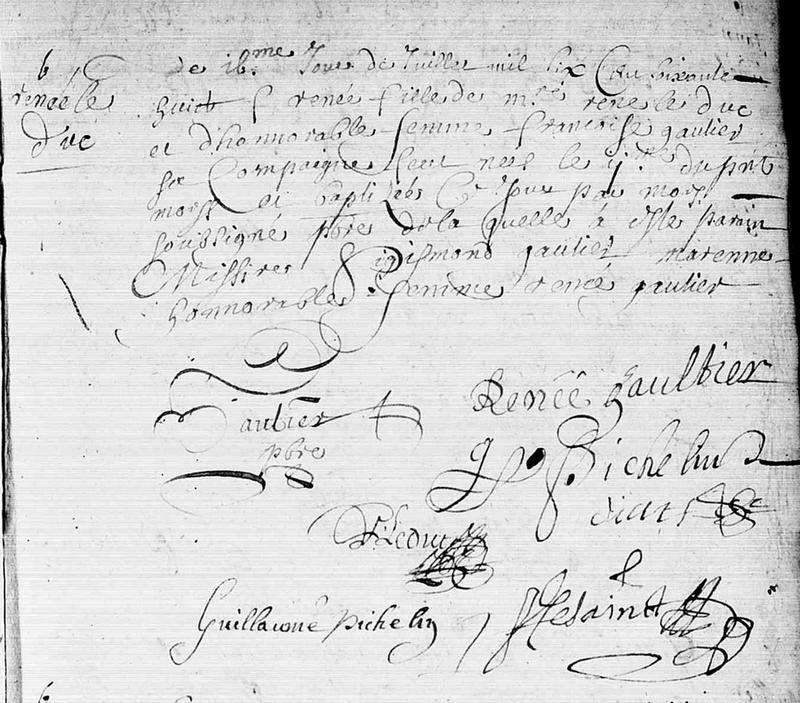 6
renee le
duc
de 16.me Jour de Juillet mil six Cens soixante
huict f renée fille de m.re rene le duc
et d'honnorable femme francoise gautier
sa Compaigne Lceu nee le du p̃nt
moys et baptizée Ce Jour par moys
soubsigné pbre de la quelle a este parain
Missire Sigismond gautier marenne
honnorable femme renee gautier
Renée gaultier
Gautier
pbre
Pichelin
R Leduc
Guillaume pichelin
Lesaint
6